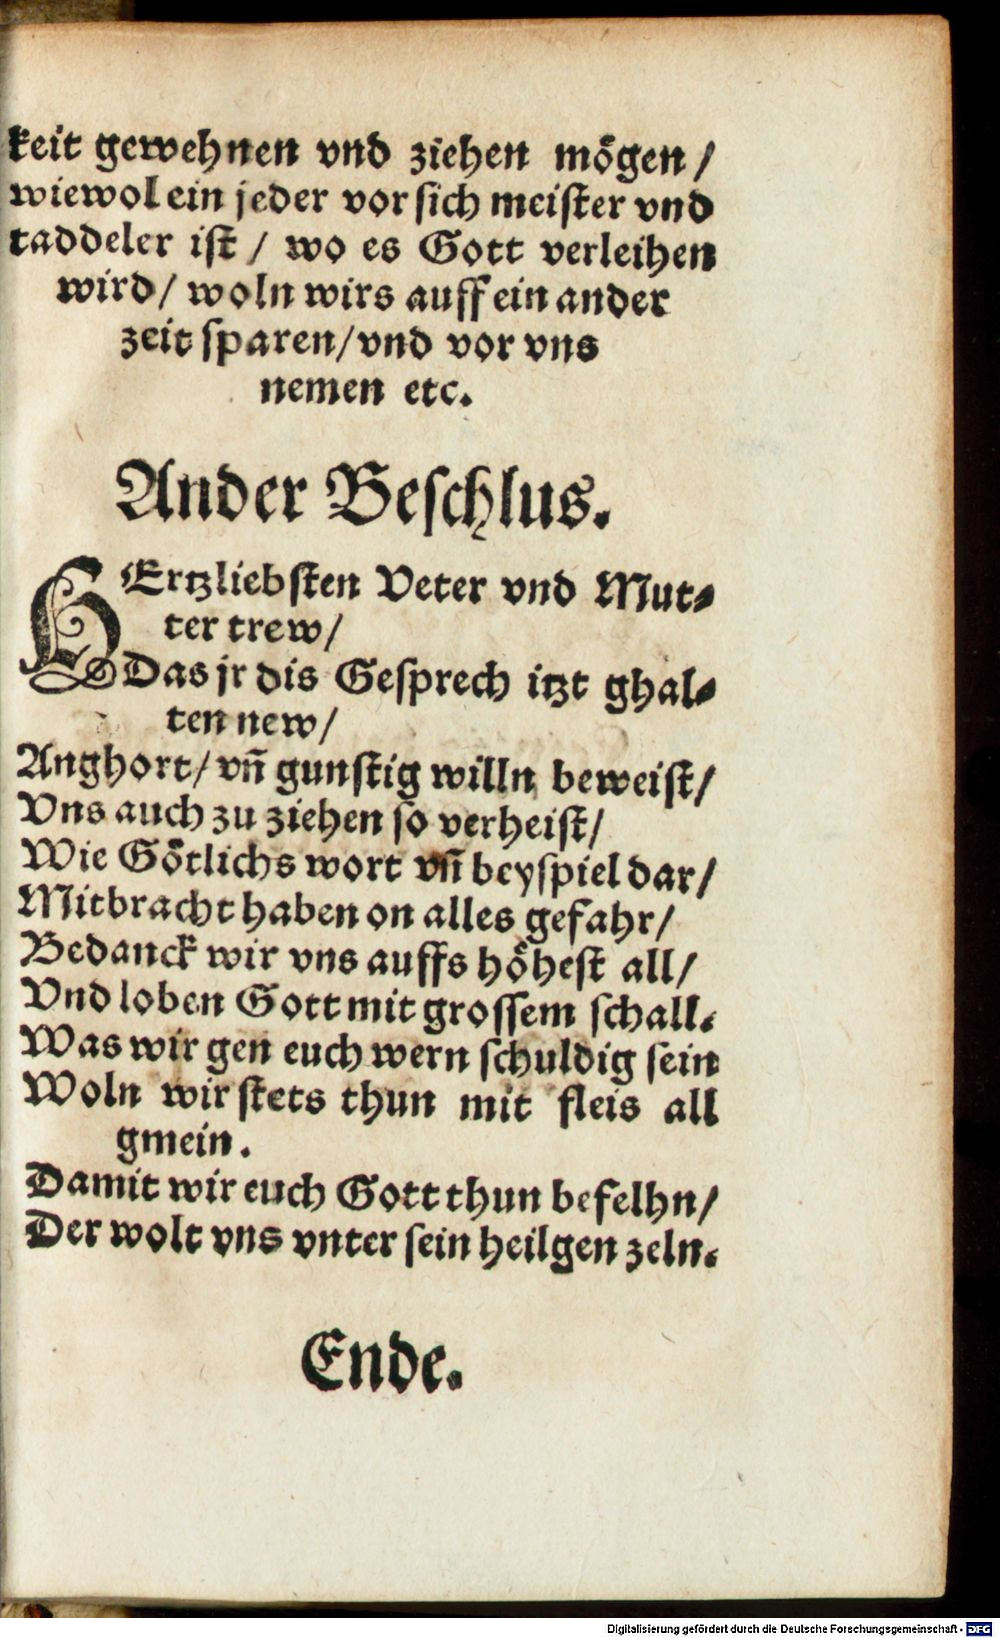 keit gewehnen vnd ziehen mögen /
wiewol ein jeder vor sich meister vnd
taddeler ist / wo es Gott verleihen
wird / woln wirs auff ein ander
zeit sparen / vnd vor vns
nemen etc.
Ander Beschlus.
HErtzliebsten Veter vnd Mut⸗
ter trew /
Das jr dis Gesprech itzt ghal⸗
ten new /
Anghort / vñ gunstig willn beweist /
Vns auch zu ziehen so verheist /
Wie Götlichs wort vñ beyspiel dar /
Mitbracht haben on alles gefahr /
Bedanck wir vns auffs höhest all /
Vnd loben Gott mit grossem schall.
Was wir gen euch wern schuldig sein
Woln wir stets thun mit fleis all
gmein.
Damit wir euch Gott thun befelhn /
Der wolt vns vnter sein heilgen zeln.
Ende.
Digitalisierung gefördert durch die Deutsche Forschungsgemeinschaft - DFG